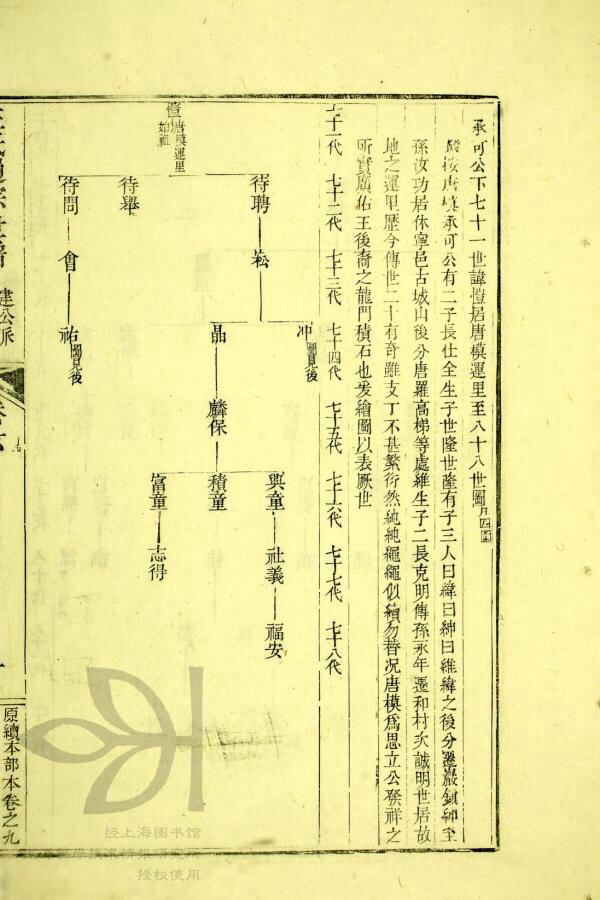 承可公下七十一世諱愷居唐模運里至八十八世圖
按唐模承可公有二子長仕全生子世隆世隆有子三人曰緯曰紳曰維緯之後分遷巖鎮紳至
孫汝功居休寧邑古城山後分唐羅高梯等處維生子二長克明傳孫永年遷和村次誠明世居故
地之運里歷今傳世二十有奇雖支丁不甚繁衍然純純繩繩似續勿替况唐模爲思立公發祥之
所實廣佑王後裔之龍門積石也爰繪圖以表厥世
七十一代 七十二代 七十三代 七十四代 七十五代 七十六代 七十七代 七十八代
愷 唐模運里始祖
待聘 崧
冲 圖見後
晶 麟保
興童 社義 福安
積童
富童 志得
待舉
待問 會 祐 圖見後
建公派
原續本部本卷之九
经上海图书馆
授权使用